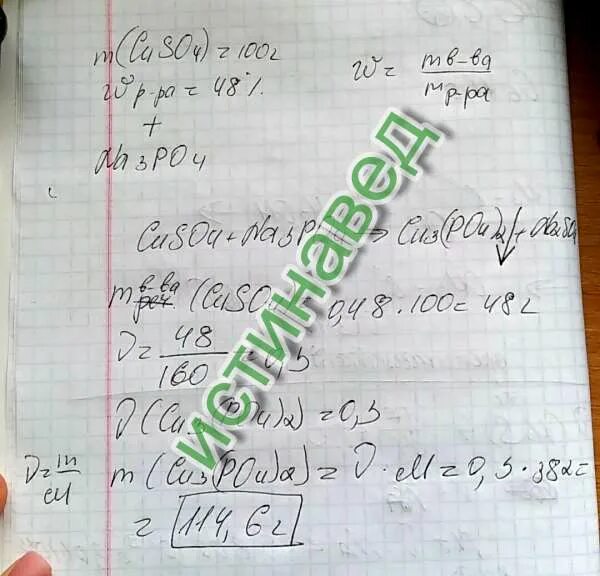 m(CuSO4) = 100г
W р-ра = 48%
+
Na3PO4
W = m в-ва / m р-ра
CuSO4 + Na3PO4 → Cu3(PO4)2↓ + Na2SO4
m в-ва (CuSO4) = 0,48 · 100 = 48г
ν = 48 / 160 = 0,3
ν(Cu3(PO4)2) = 0,3
ν = m / M
m (Cu3(PO4)2) = ν · M = 0,3 · 382 =
= 114,6г
истинавед